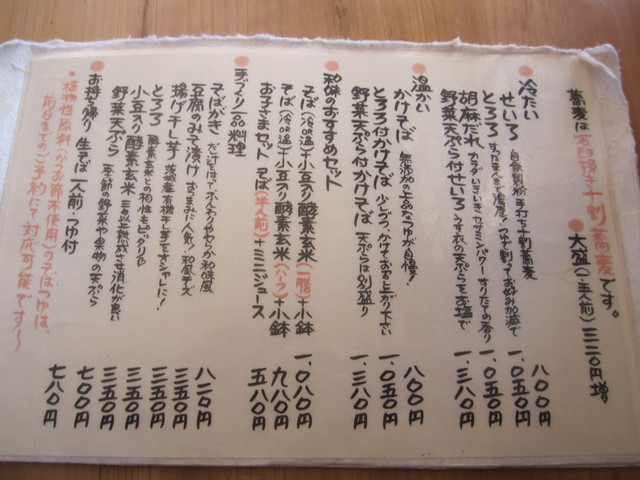 蕎麦は石臼挽き十割蕎麦です。
大盛(一.五人前)三二〇円増。
冷たい
せいろ 自家製粉 手打ち十割蕎麦 八〇〇円
とろろ すった本人も濃厚!つゆで割ってお好み加減で 一、〇五〇円
胡麻だれ カラダいきいきセサミンパワー すりたての香り 一、〇五〇円
野菜天ぷら付せいろ うす衣の天ぷらをお塩で 一、三八〇円
温かい
かけそば 無添加の上品なつゆが自慢! 八〇〇円
とろろ付かけそば 少しづつかけてお召し上り下さい 一、〇五〇円
野菜天ぷら付かけそば 天ぷらは別盛り 一、三八〇円
和味のおすすめセット
そば(冷or温)+小豆入り酵素玄米(一膳)+小鉢 一、〇八〇円
そば(冷or温)+小豆入り酵素玄米(ハーフ)+小鉢 九八〇円
お子さまセット そば(半人前)+ミニジュース 五八〇円
手づくり一品料理
そばがき だけそばで ふんわりやわらか 和味風 八二〇円
豆腐のみそ漬け おつまみに人気!和風チーズ 三五〇円
揚げ干し芋 茨城産有機干し芋をオシャレに! 三五〇円
とろろ 酵素玄米との相性もピッタリ 三五〇円
小豆入り酵素玄米 三日以上熟成させ消化が良い 三五〇円
野菜天ぷら 季節の野菜や果物の天ぷら 七〇〇円
お持ち帰り 生そば一人前・つゆ付 七八〇円
・植物性原料(かつお節不使用)のそばつゆは、
前日までのご予約にて対応可能です〜